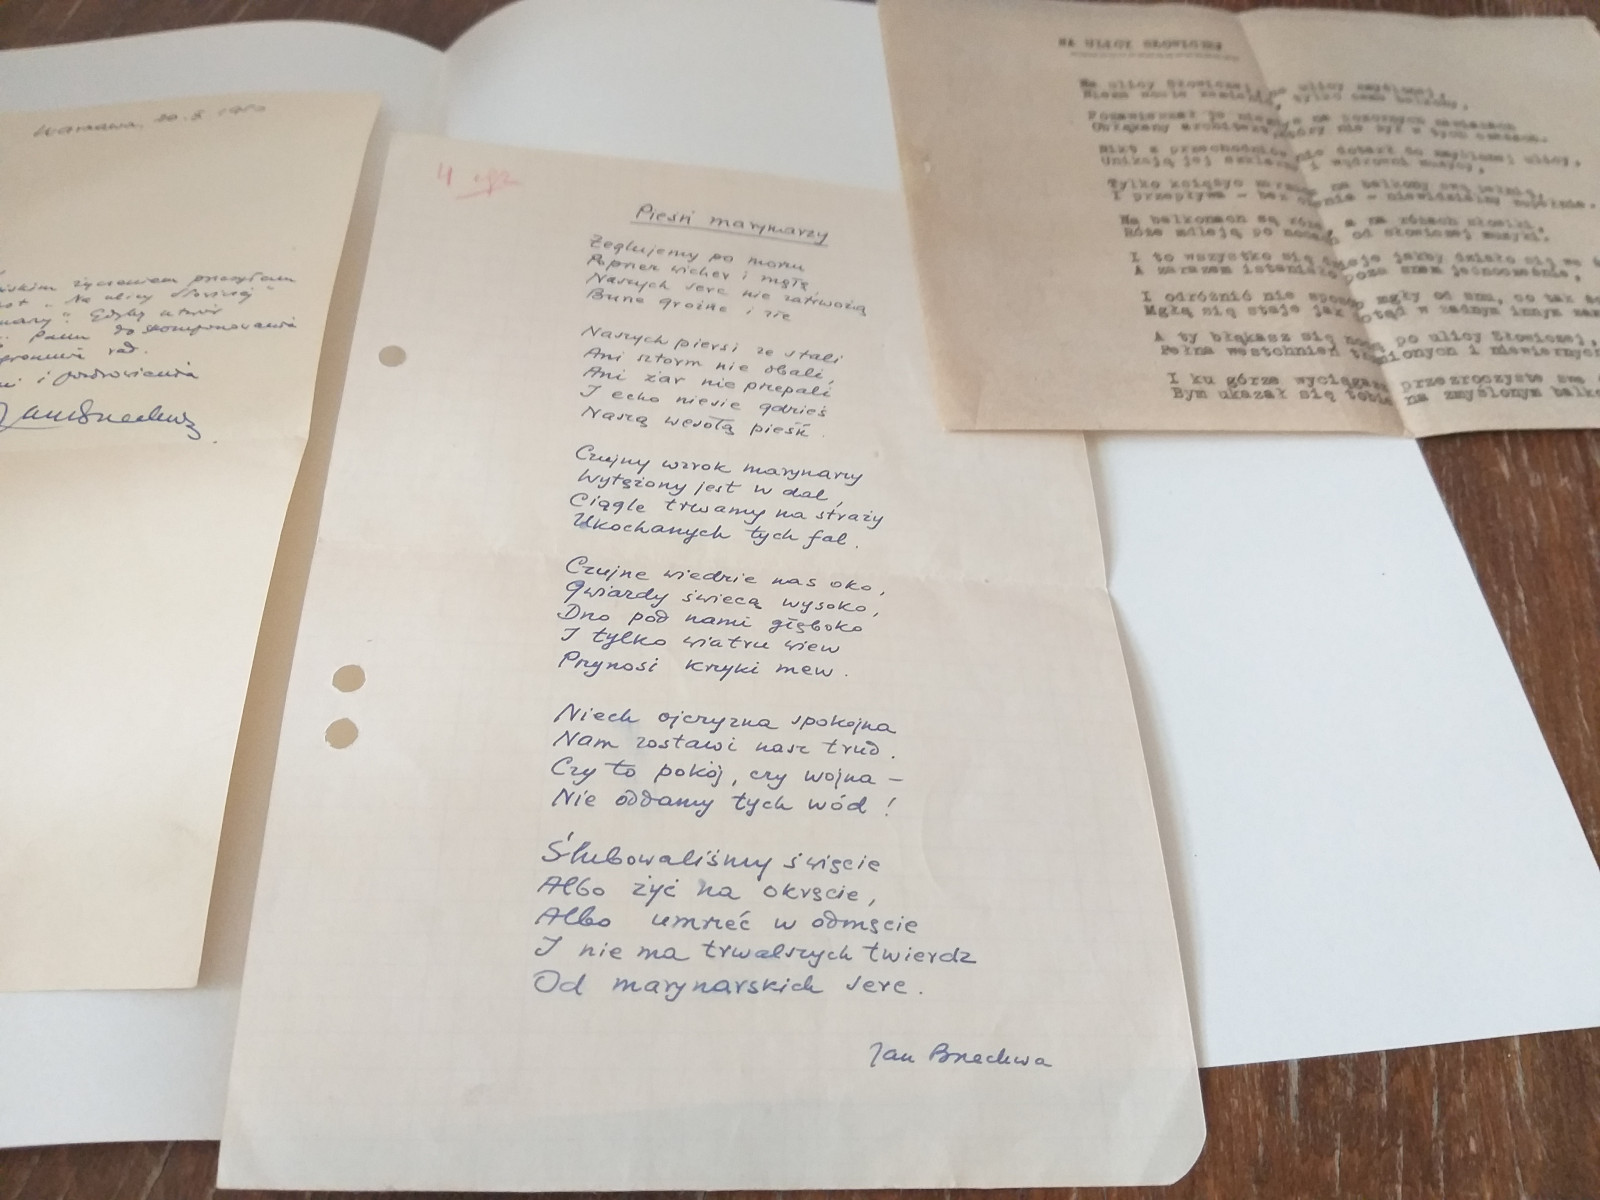 Warszawa, 20.X 1950
życzeniem przesyłam
"Na ulicy Słowiczej"
Gdyby utwór
Panu do skomponowania
rad.
i pozdrowienia
Jan Brzechwa
4 egz
Pieśń marynarzy
Żeglujemy po morzu
Poprzez wicher i mgłę
Naszych serc nie zatrwożą
Burze groźne i złe
Naszych piersi ze stali
Ani sztorm nie obali,
Ani żar nie przepali
I echo niesie gdzieś
Naszą wesołą pieśń.
Czujny wzrok marynarzy
Wytężony jest w dal,
Ciągle trwamy na straży
Ukochanych tych fal.
Czujne wiedzie nas oko,
Gwiazdy świecą wysoko,
Dno pod nami głęboko
I tylko wiatru wiew
Przynosi krzyki mew.
Niech ojczyzna spokojna
Nam zostawi nasz trud.
Czy to pokój, czy wojna –
Nie oddamy tych wód!
Ślubowaliśmy święcie
Albo żyć na okręcie,
Albo umrzeć w odmęcie
I nie ma trwalszych twierdz
Od marynarskich serc.
Jan Brzechwa
NA ULICY SŁOWICZEJ
Na ulicy Słowiczej, po ulicy zmyślonej,
Nikt z przechodniów nie dotarł do zmyślonej ulicy,
Unikają jej i wędrowni muzycy,
Tylko księżyc na balkony swą pełnią,
I przepływa - bez - niewidzialny zupełnie.
Na balkonach są róże, a na różach słowiki,
Róże mdleją po nocach od słowiczej muzyki.
I to wszystko się dzieje jakby działo się we
A zarazem istnieje poza snem jednocześnie,
I odróżnić nie sposób mgły od snu, co tak
Mgłą się staje jak dotąd w żadnym innym
A ty błąkasz się nocą po ulicy Słowiczej,
Pełna westchnień tłumionych i niewiernych
I ku górze wyciągasz przezroczyste swe
Bym ukazał się tobie na zmyślonym